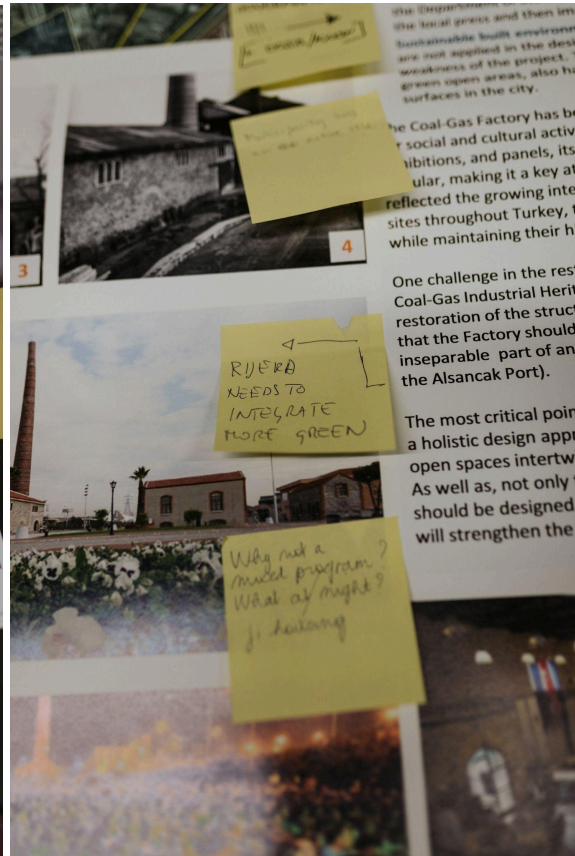 the local press and then im
Sustainable built environm
are not applied in the desi
weakness of the project.
green open areas, also ha
surfaces in the city.
he Coal-Gas Factory has be
social and cultural activ
ibitions, and panels, its
ular, making it a key at
reflected the growing inte
sites throughout Turkey,
while maintaining their h
3
4
One challenge in the res
Coal-Gas Industrial Herit
restoration of the struct
that the Factory should
inseparable part of an
the Alsancak Port).
RIJEKA
NEEDS TO
INTEGRATE
MORE GREEN
The most critical poin
a holistic design appr
open spaces intertw
As well as, not only
should be designed
will strengthen the
Why not a
mixed program?
What at night?
housing